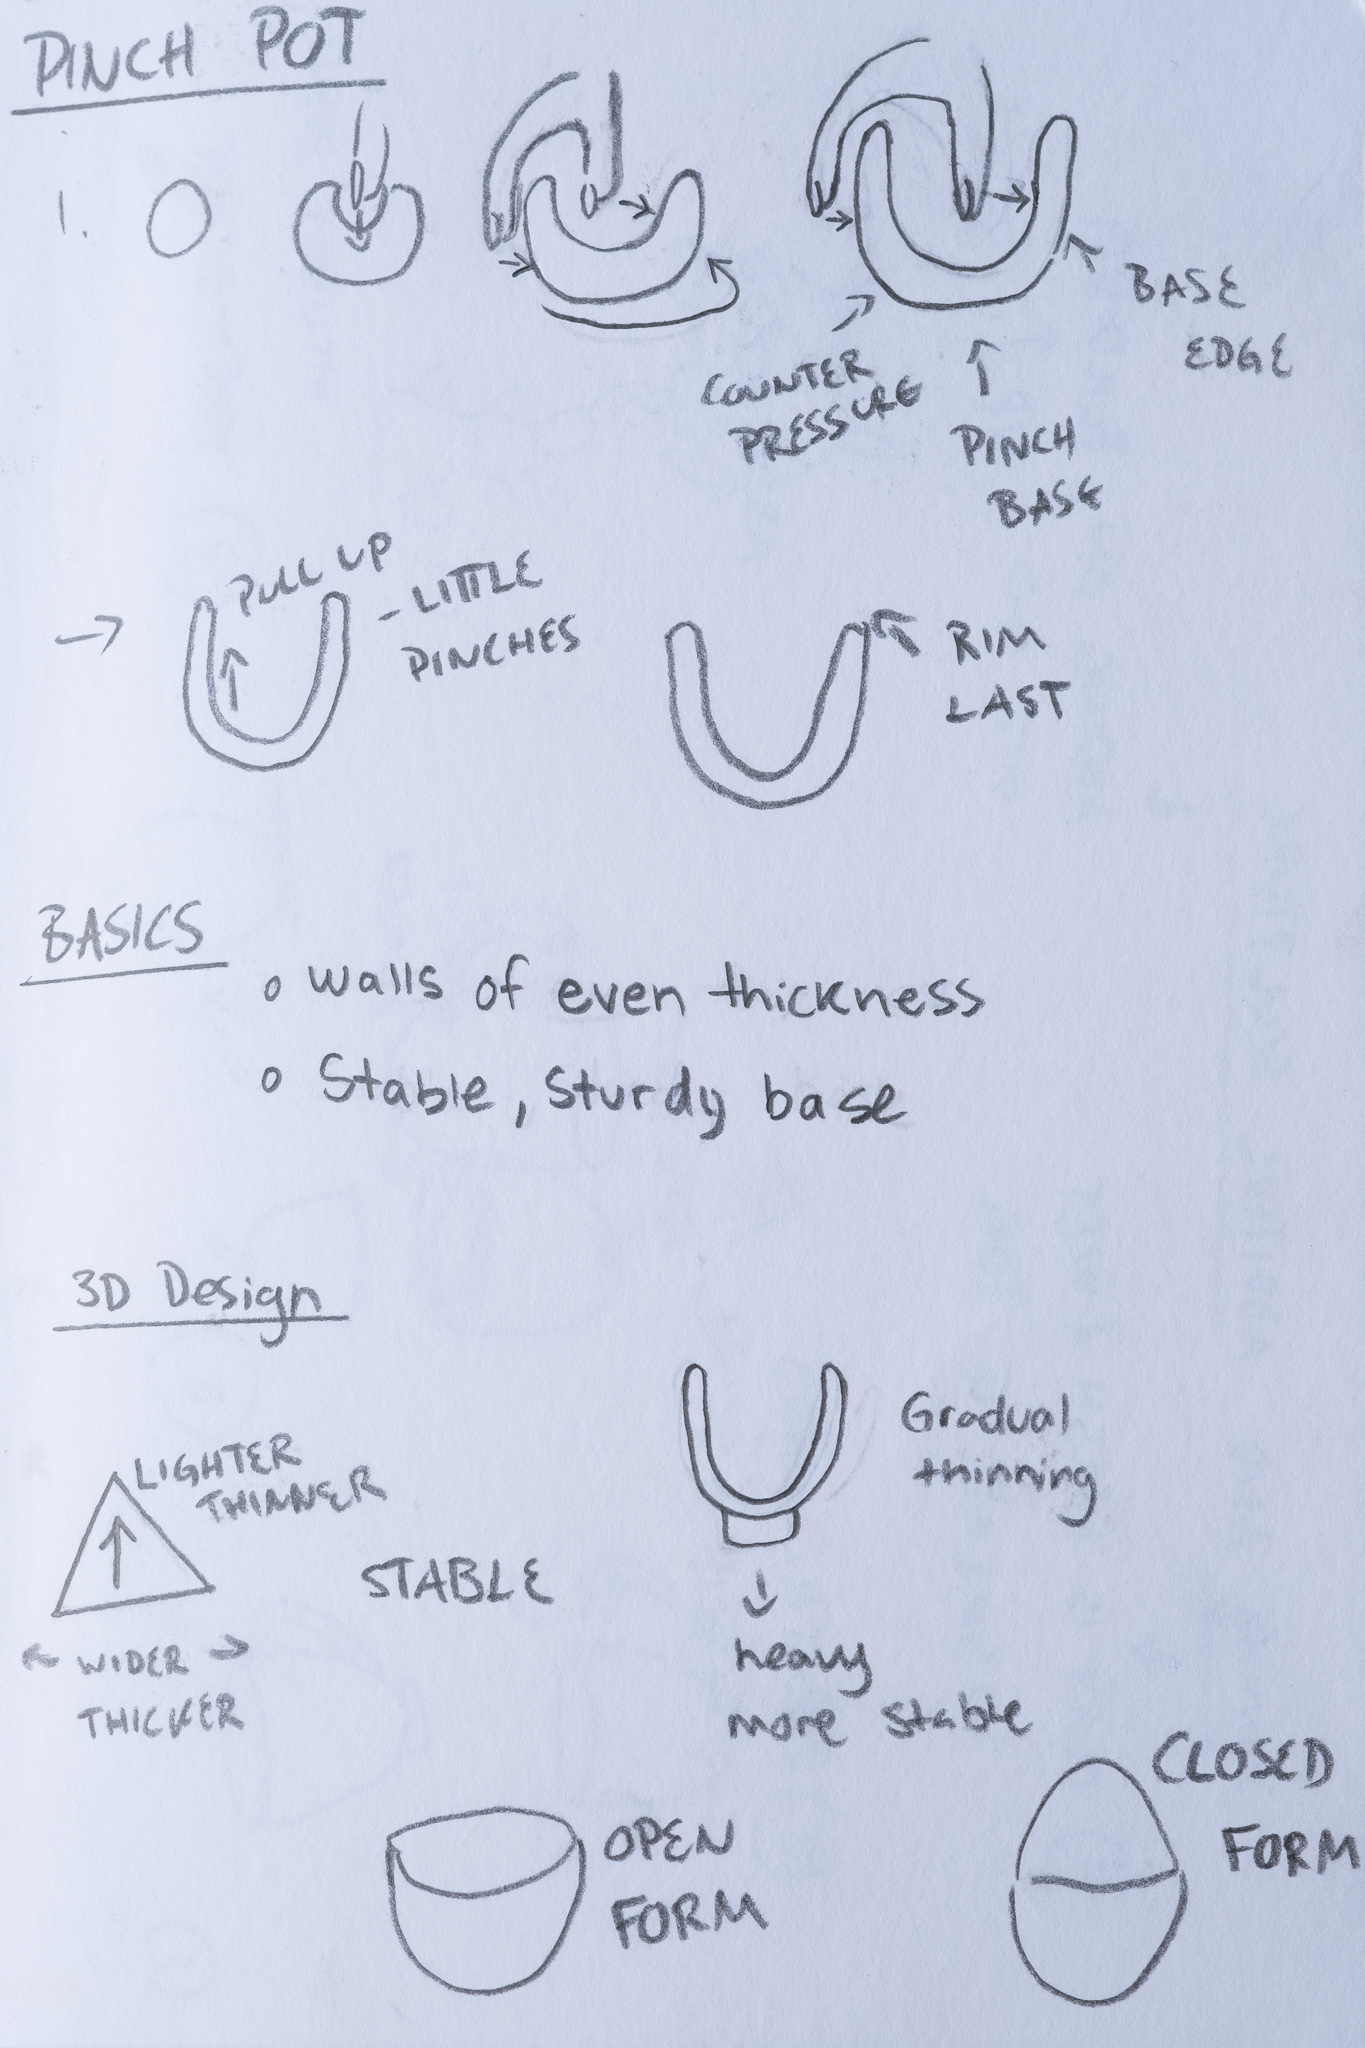 PINCH POT
1.
BASE
EDGE
COUNTER
PRESSURE
PINCH
BASE
PULL UP
- LITTLE
PINCHES
RIM
LAST
BASICS
o walls of even thickness
o Stable, Sturdy base
3D Design
LIGHTER
THINNER
STABLE
WIDER
THICKER
Gradual
thinning
heavy
more stable
OPEN
FORM
CLOSED
FORM